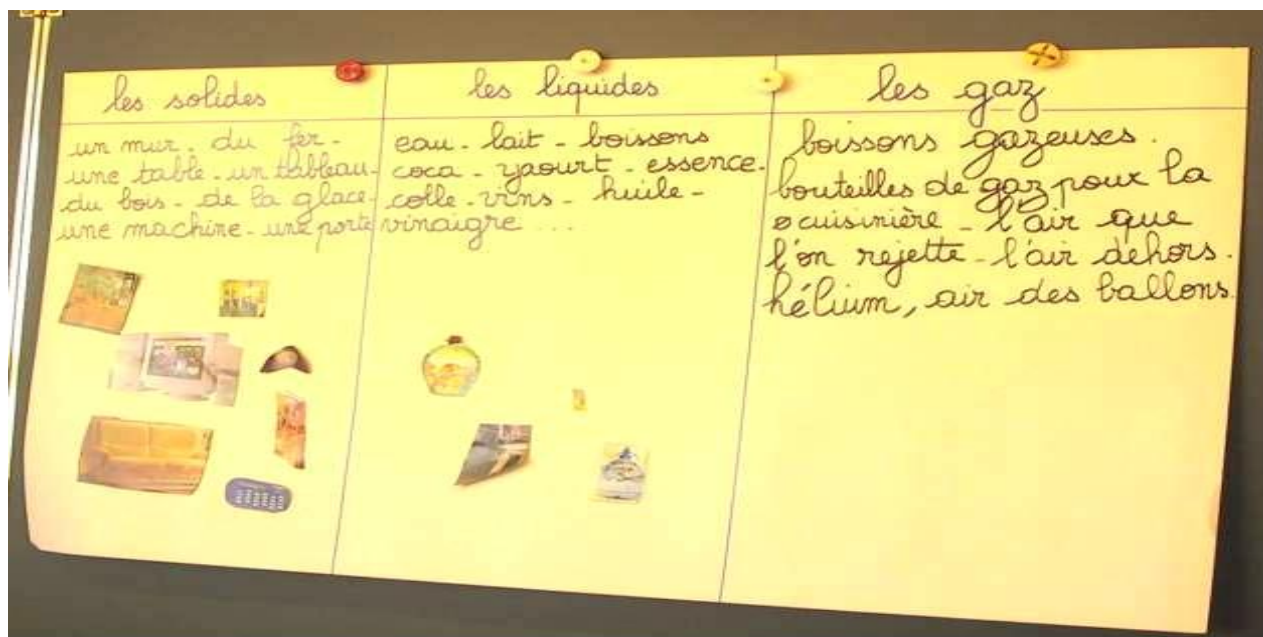 les solides
un mur - du fer -
une table - un tableau -
du bois - de la glace -
une machine - une porte
les liquides
eau - lait - boissons
coca - yaourt - essence -
colle - vins - huile -
vinaigre ...
les gaz
boissons gazeuses.
bouteilles de gaz pour la
cuisinière - l'air que
l'on rejette - l'air dehors.
hélium, air des ballons.